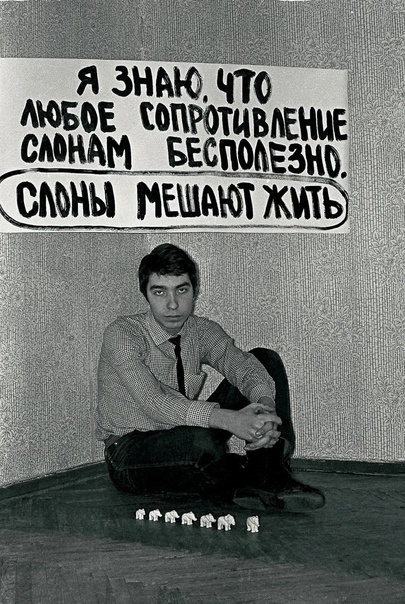 Я ЗНАЮ, ЧТО
ЛЮБОЕ СОПРОТИВЛЕНИЕ
СЛОНАМ БЕСПОЛЕЗНО.
СЛОНЫ МЕШАЮТ ЖИТЬ